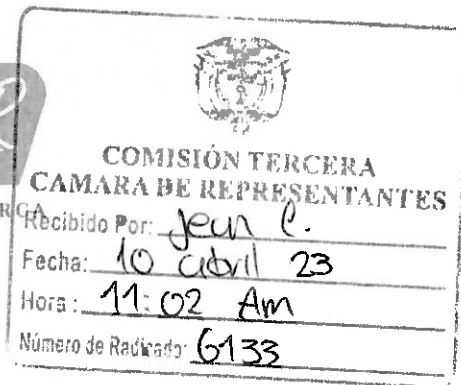 COMISIÓN TERCERA
CAMARA DE REPRESENTANTES
Recibido Por: Jean C.
Fecha: 10 abril 23
Hora: 11:02 Am
Número de Radicado: 6133